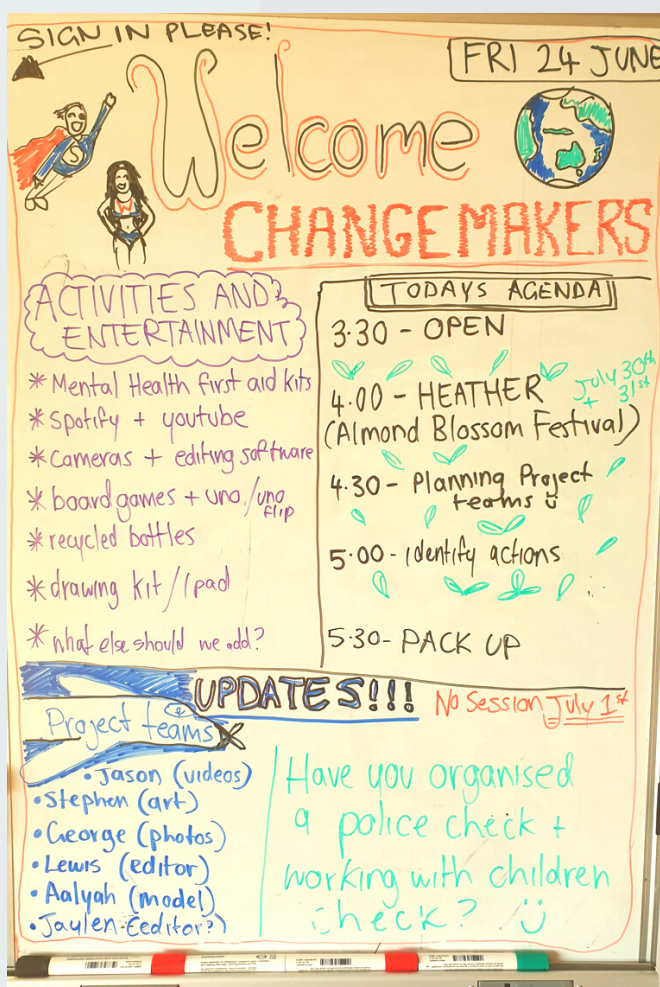 SIGN IN PLEASE!
FRI 24 JUNE
Welcome
CHANGEMAKERS
S
W
ACTIVITIES AND
ENTERTAINMENT
* Mental Health first aid kits
* Spotify + youtube
* cameras + editing software
* board games + uno / uno
flip
* recycled bottles
* drawing kit / Ipad
* what else should we add?
TODAYS AGENDA
3.30 - OPEN
4.00 - HEATHER
July 30th
+ 31st
(Almond Blossom Festival)
4.30 - Planning Project
teams
5.00 - identify actions
5.30 - PACK UP
UPDATES!!!
No Session July 1st
Project teams
• Jason (videos)
• Stephen (art)
• George (photos)
• Lewis (editor)
• Aalyah (model)
• Jaylen (editor?)
Have you organised
a police check +
working with children
check?